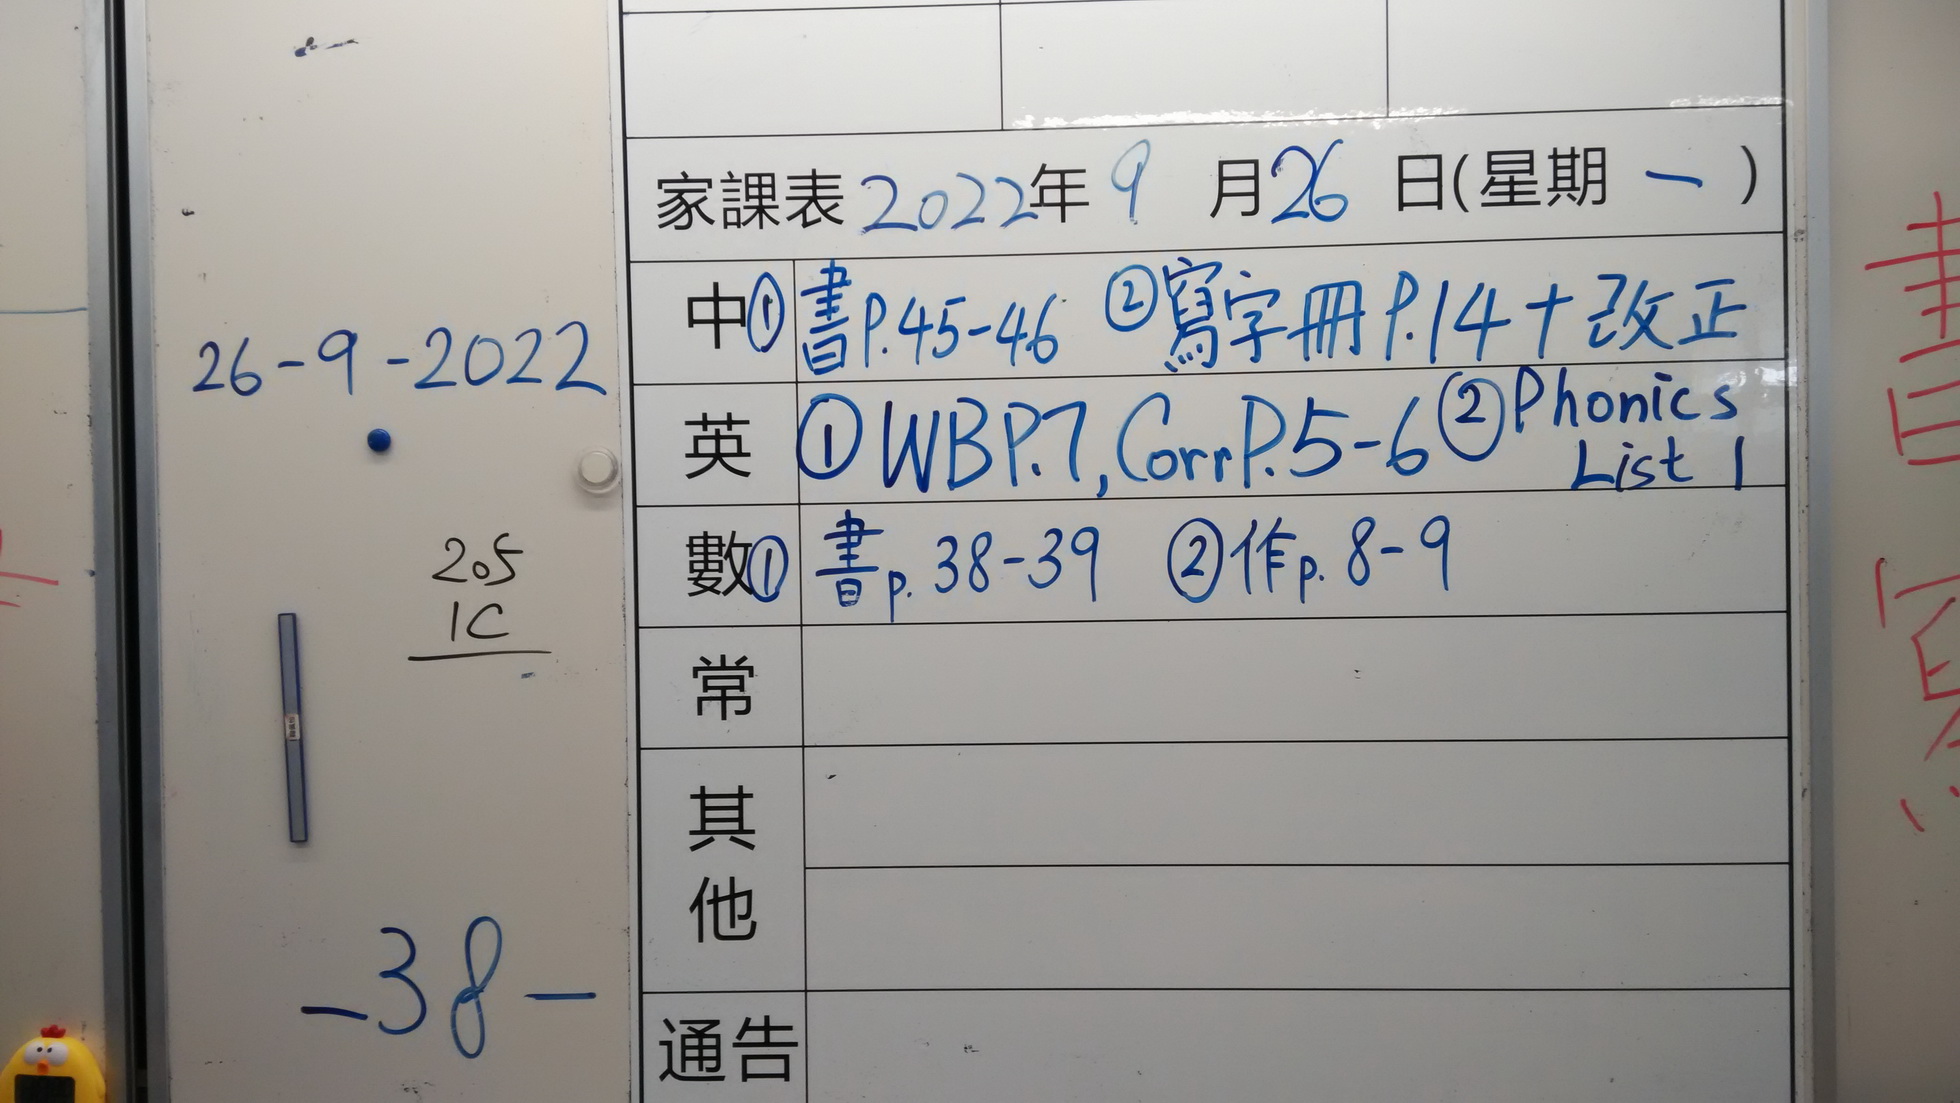 家課表 2022年 9 月 26 日(星期 一 )
中 ① 書P.45-46 ② 寫字冊 P.14 + 改正
英 ① WB P.7, Corr P.5-6 ② Phonics List 1
數 ① 書p. 38-39 ② 作p. 8-9
常
其他
通告
26-9-2022
205
1C
-38-
書